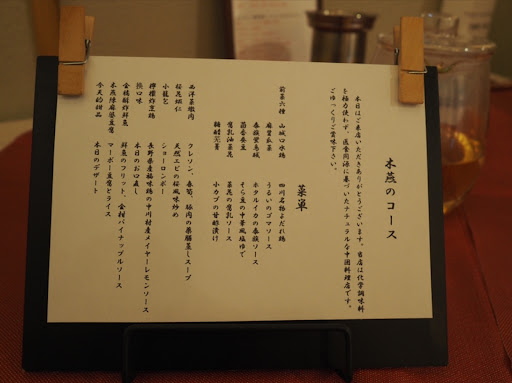 木燕のコース
本日はご来店いただきありがとうございます。当店は化学調味料
を極力使わず、医食同源に基づいたナチュラルな中国料理店です。
ごゆっくりご賞味下さい。
菜単
前菜六種 山城口水鶏 四川名物よだれ鶏
麻醤瓜菜 うるいのゴマソース
泰族蛍烏賊 ホタルイカの泰族ソース
茴香蚕豆 そら豆の中華風塩ゆで
腐乳油菜花 菜花の腐乳ソース
糖醋蕪菁 小カブの甘酢漬け
西洋菜燉肉 クレソン、春菊、豚肉の薬膳蒸しスープ
桜花蝦仁 天然エビの桜風味炒め
小籠包 ショーロンポー
檸檬炸烹鶏 長野県産極味鶏の中川村産メイヤーレモンソース
換口味 本日のお口直し
金橘醋炸鮮魚 鮮魚のフリット、金柑パイナップルソース
木燕陳麻婆豆腐 マーボー豆腐とライス
今天的甜品 本日のデザート